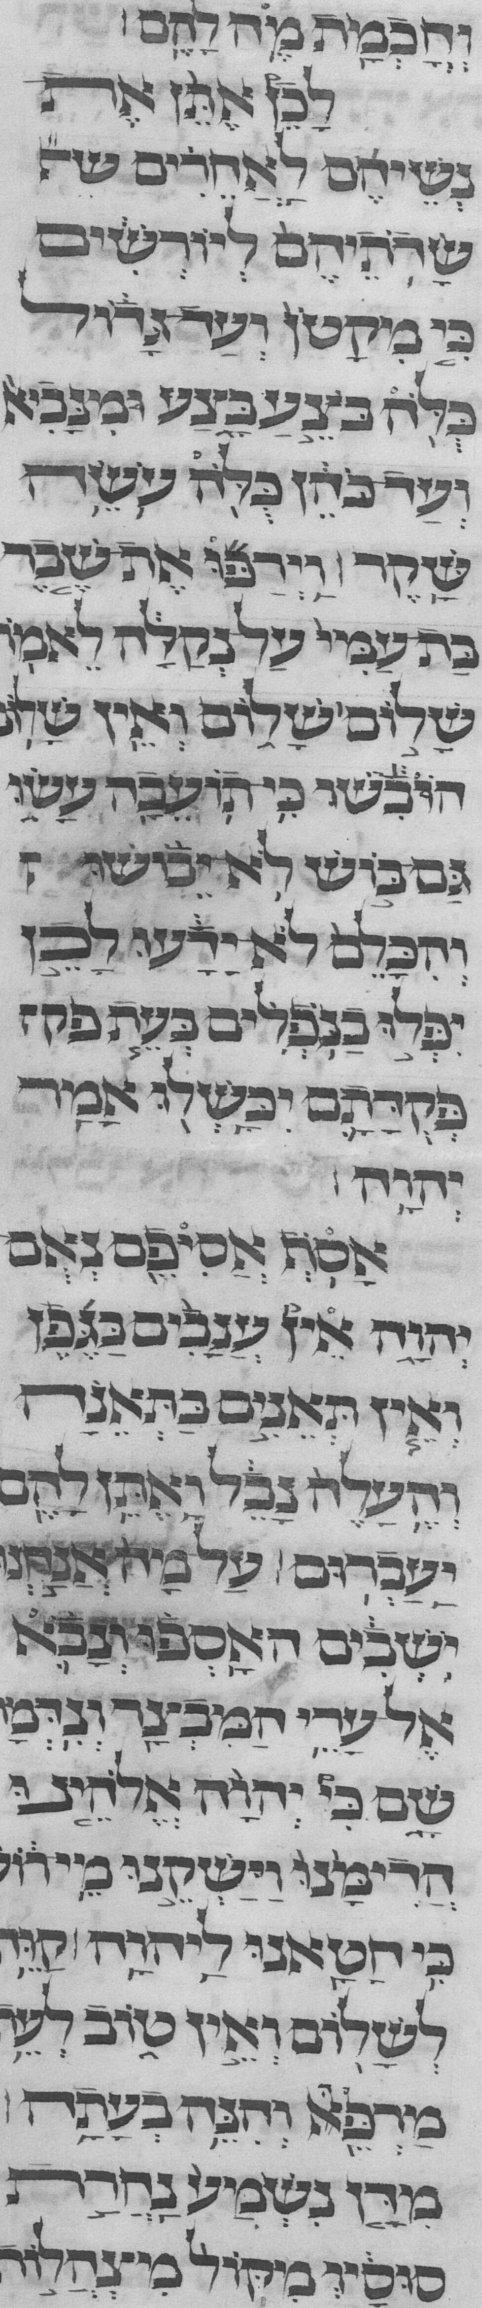 וְחָכְמַת מֶה לָהֶם׃
לָכֵן אֶתֵּן אֶת
נְשֵׁיהֶם לַאֲחֵרִים שׂ
שְׂדֹתֵיהֶם לְיוֹרְשִׁים
כִּי מִקָּטֹן וְעַד גָּדוֹל
כֻּלֹּה בֹּצֵעַ בָּצַע וּמִנָּבִיא
וְעַד כֹּהֵן כֻּלֹּה עֹשֶׂה
שָּׁקֶר׃ וַיְרַפּוּ אֶת שֶׁבֶר
בַּת עַמִּי עַל נְקַלָּה לֵאמֹר
שָׁלוֹם שָׁלוֹם וְאֵין שָׁלוֹם
הוֹבִשׁוּ כִּי תוֹעֵבָה עָשׂוּ
גַּם בּוֹשׁ לֹא יֵבוֹשׁוּ
וְהִכָּלֵם לֹא יָדָעוּ לָכֵן
יִפְּלוּ בַנֹּפְלִים בְּעֵת פקד
פְּקֻדָּתָם יִכָּשְׁלוּ אָמַר
יְהוָה׃
אָסֹף אֲסִיפֵם נְאֻם
יְהוָה אֵין עֲנָבִים בַּגֶּפֶן
וְאֵין תְּאֵנִים בַּתְּאֵנָה
וְהֶעָלֶה נָבֵל וָאֶתֵּן לָהֶם
יַעַבְרוּם׃ עַל מָה אֲנַחְנוּ
יֹשְׁבִים הֵאָסְפוּ וְנָבוֹא
אֶל עָרֵי הַמִּבְצָר וְנִדְּמָה
שָּׁם כִּי יְהוָה אֱלֹהֵינוּ
הֲדִימָּנוּ וַיַּשְׁקֵנוּ מֵי רוֹשׁ
כִּי חָטָאנוּ לַיהוָה׃ קַוֵּה
לְשָׁלוֹם וְאֵין טוֹב לְעֵת
מַרְפֵּא וְהִנֵּה בְעָתָה׃
מִדָּן נִשְׁמַע נַחְרַת
סוּסָיו מִקּוֹל מִצְהֲלוֹת